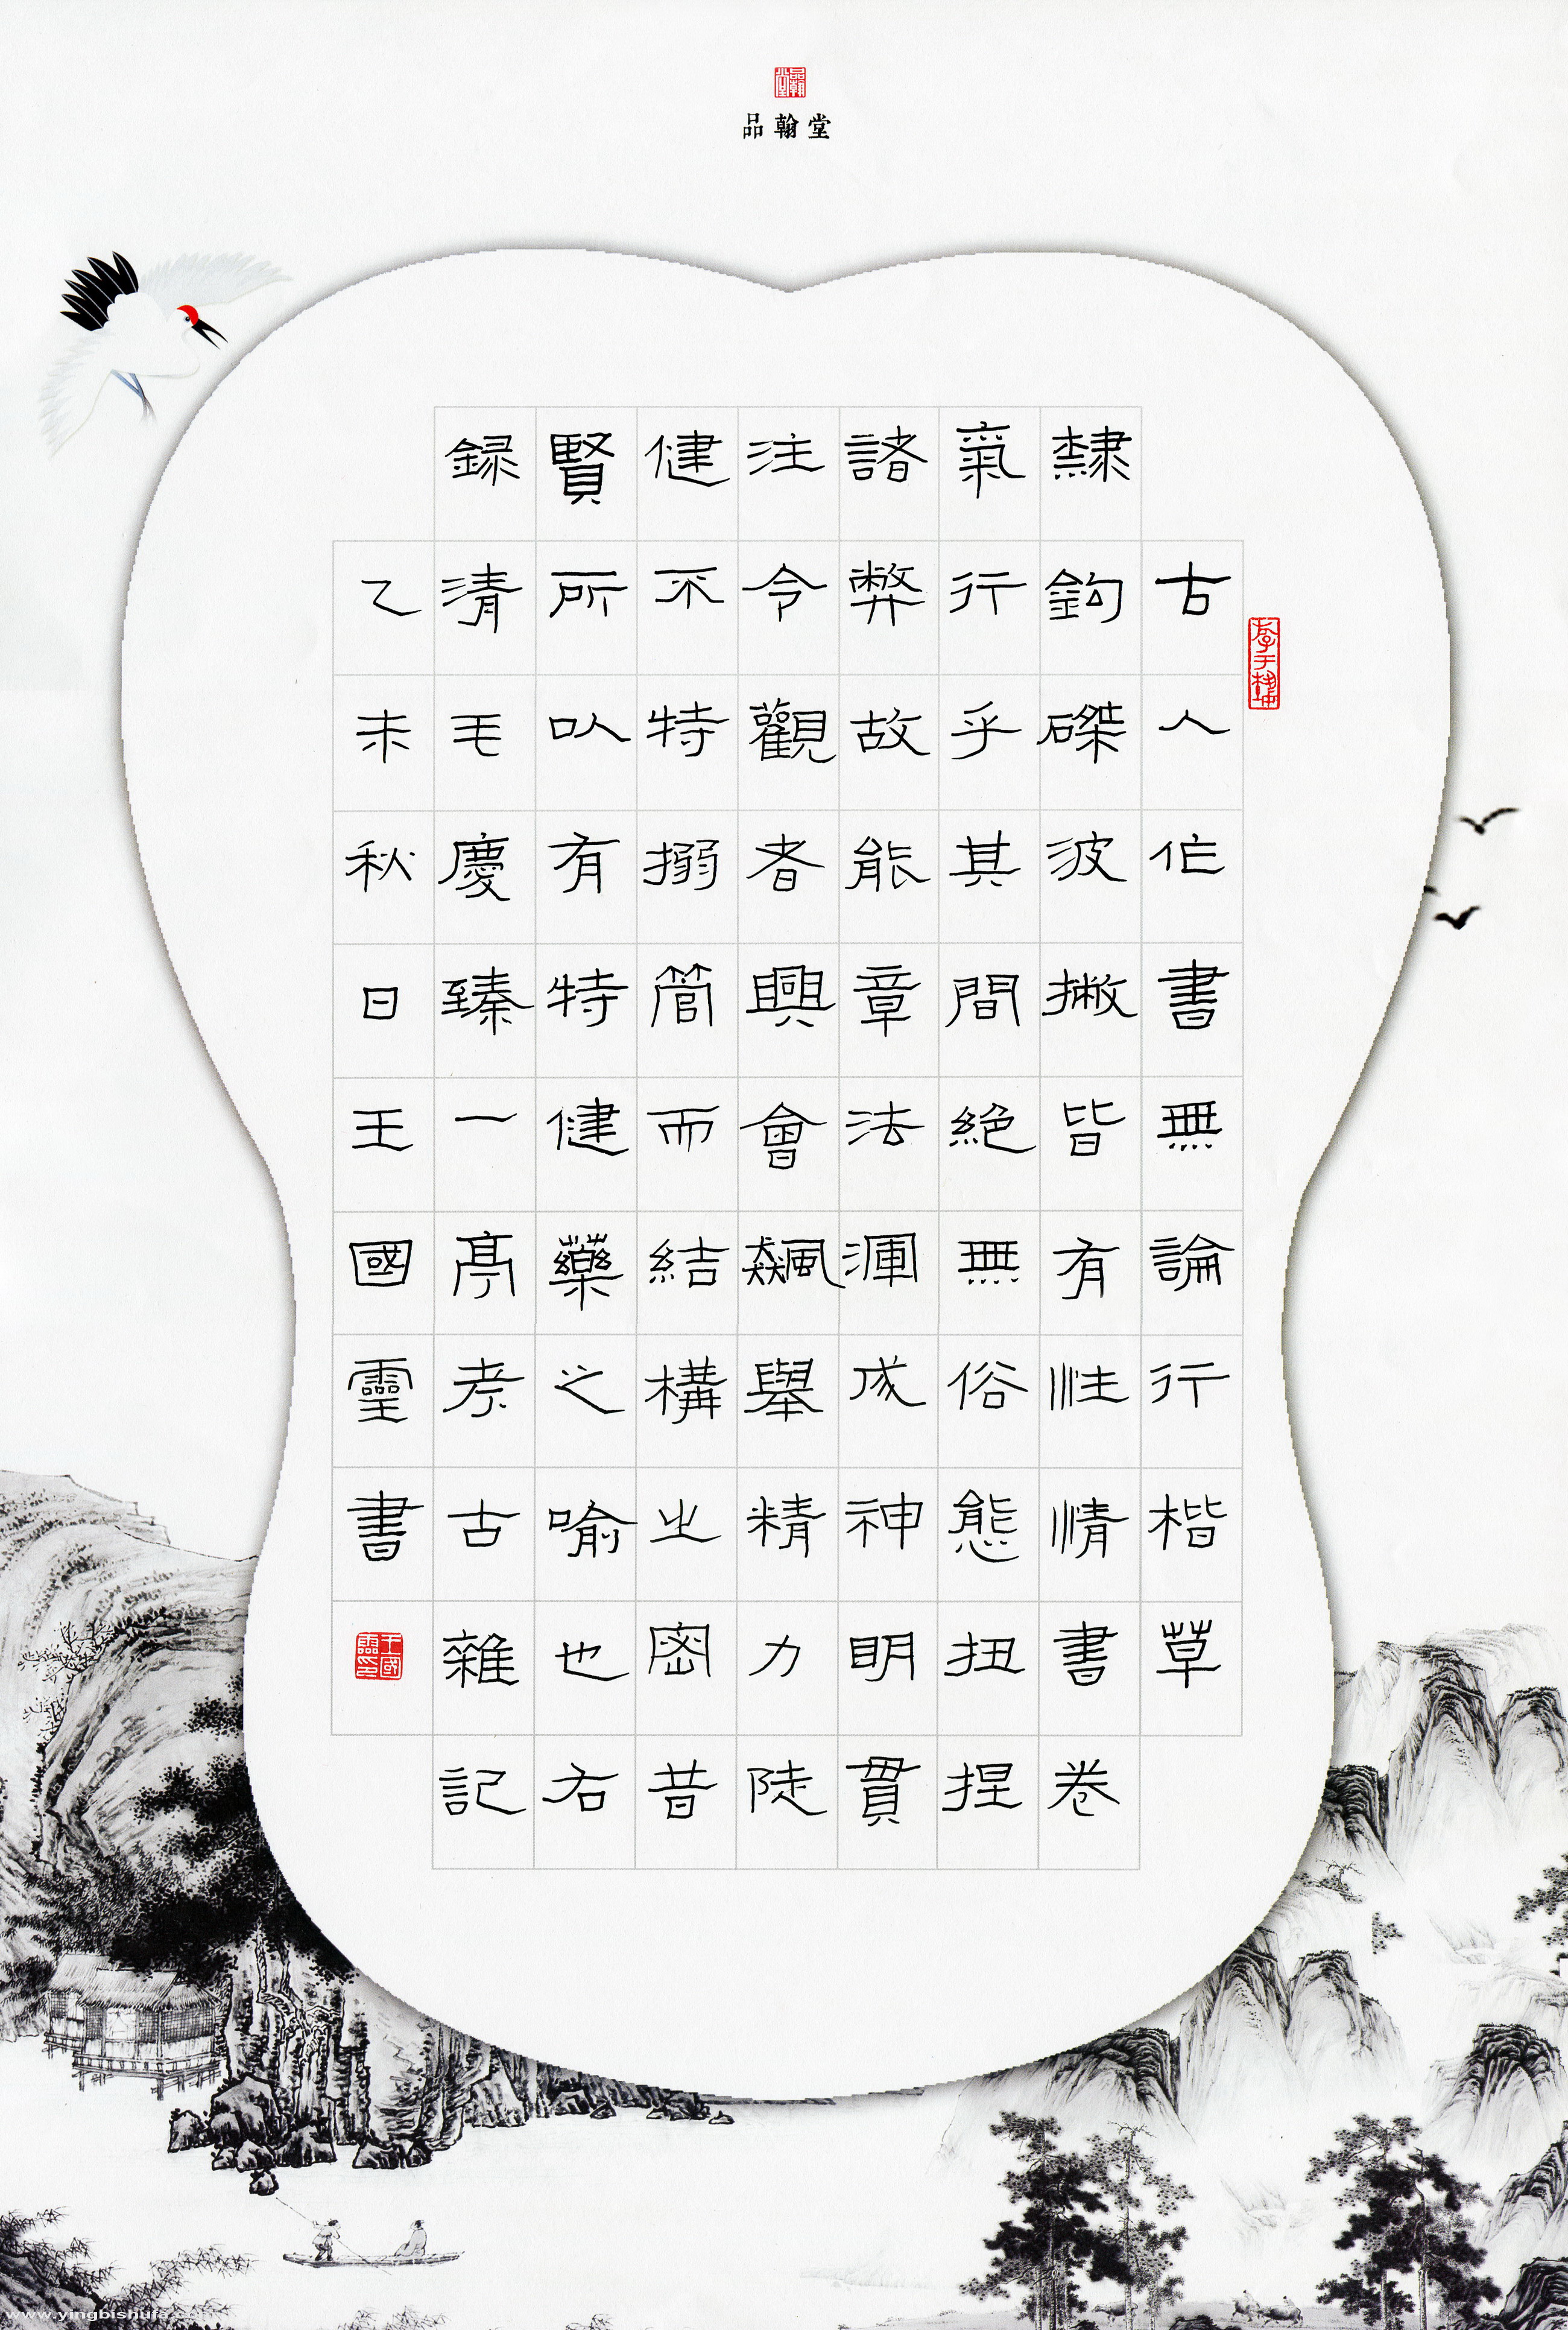 品翰堂
古人作書無論行楷草
隸鈎磔波撇皆有性情書卷
氣行乎其間絕無俗態扭捏
諸弊故能章法渾成神明貫
注令觀者興會飆舉精力陡
健不特搦管而結構之密昔
賢所以有特健藥之喻也右
録清毛慶臻一亭考古雜記
乙未秋日王國靈書
www.yingbishufa.com